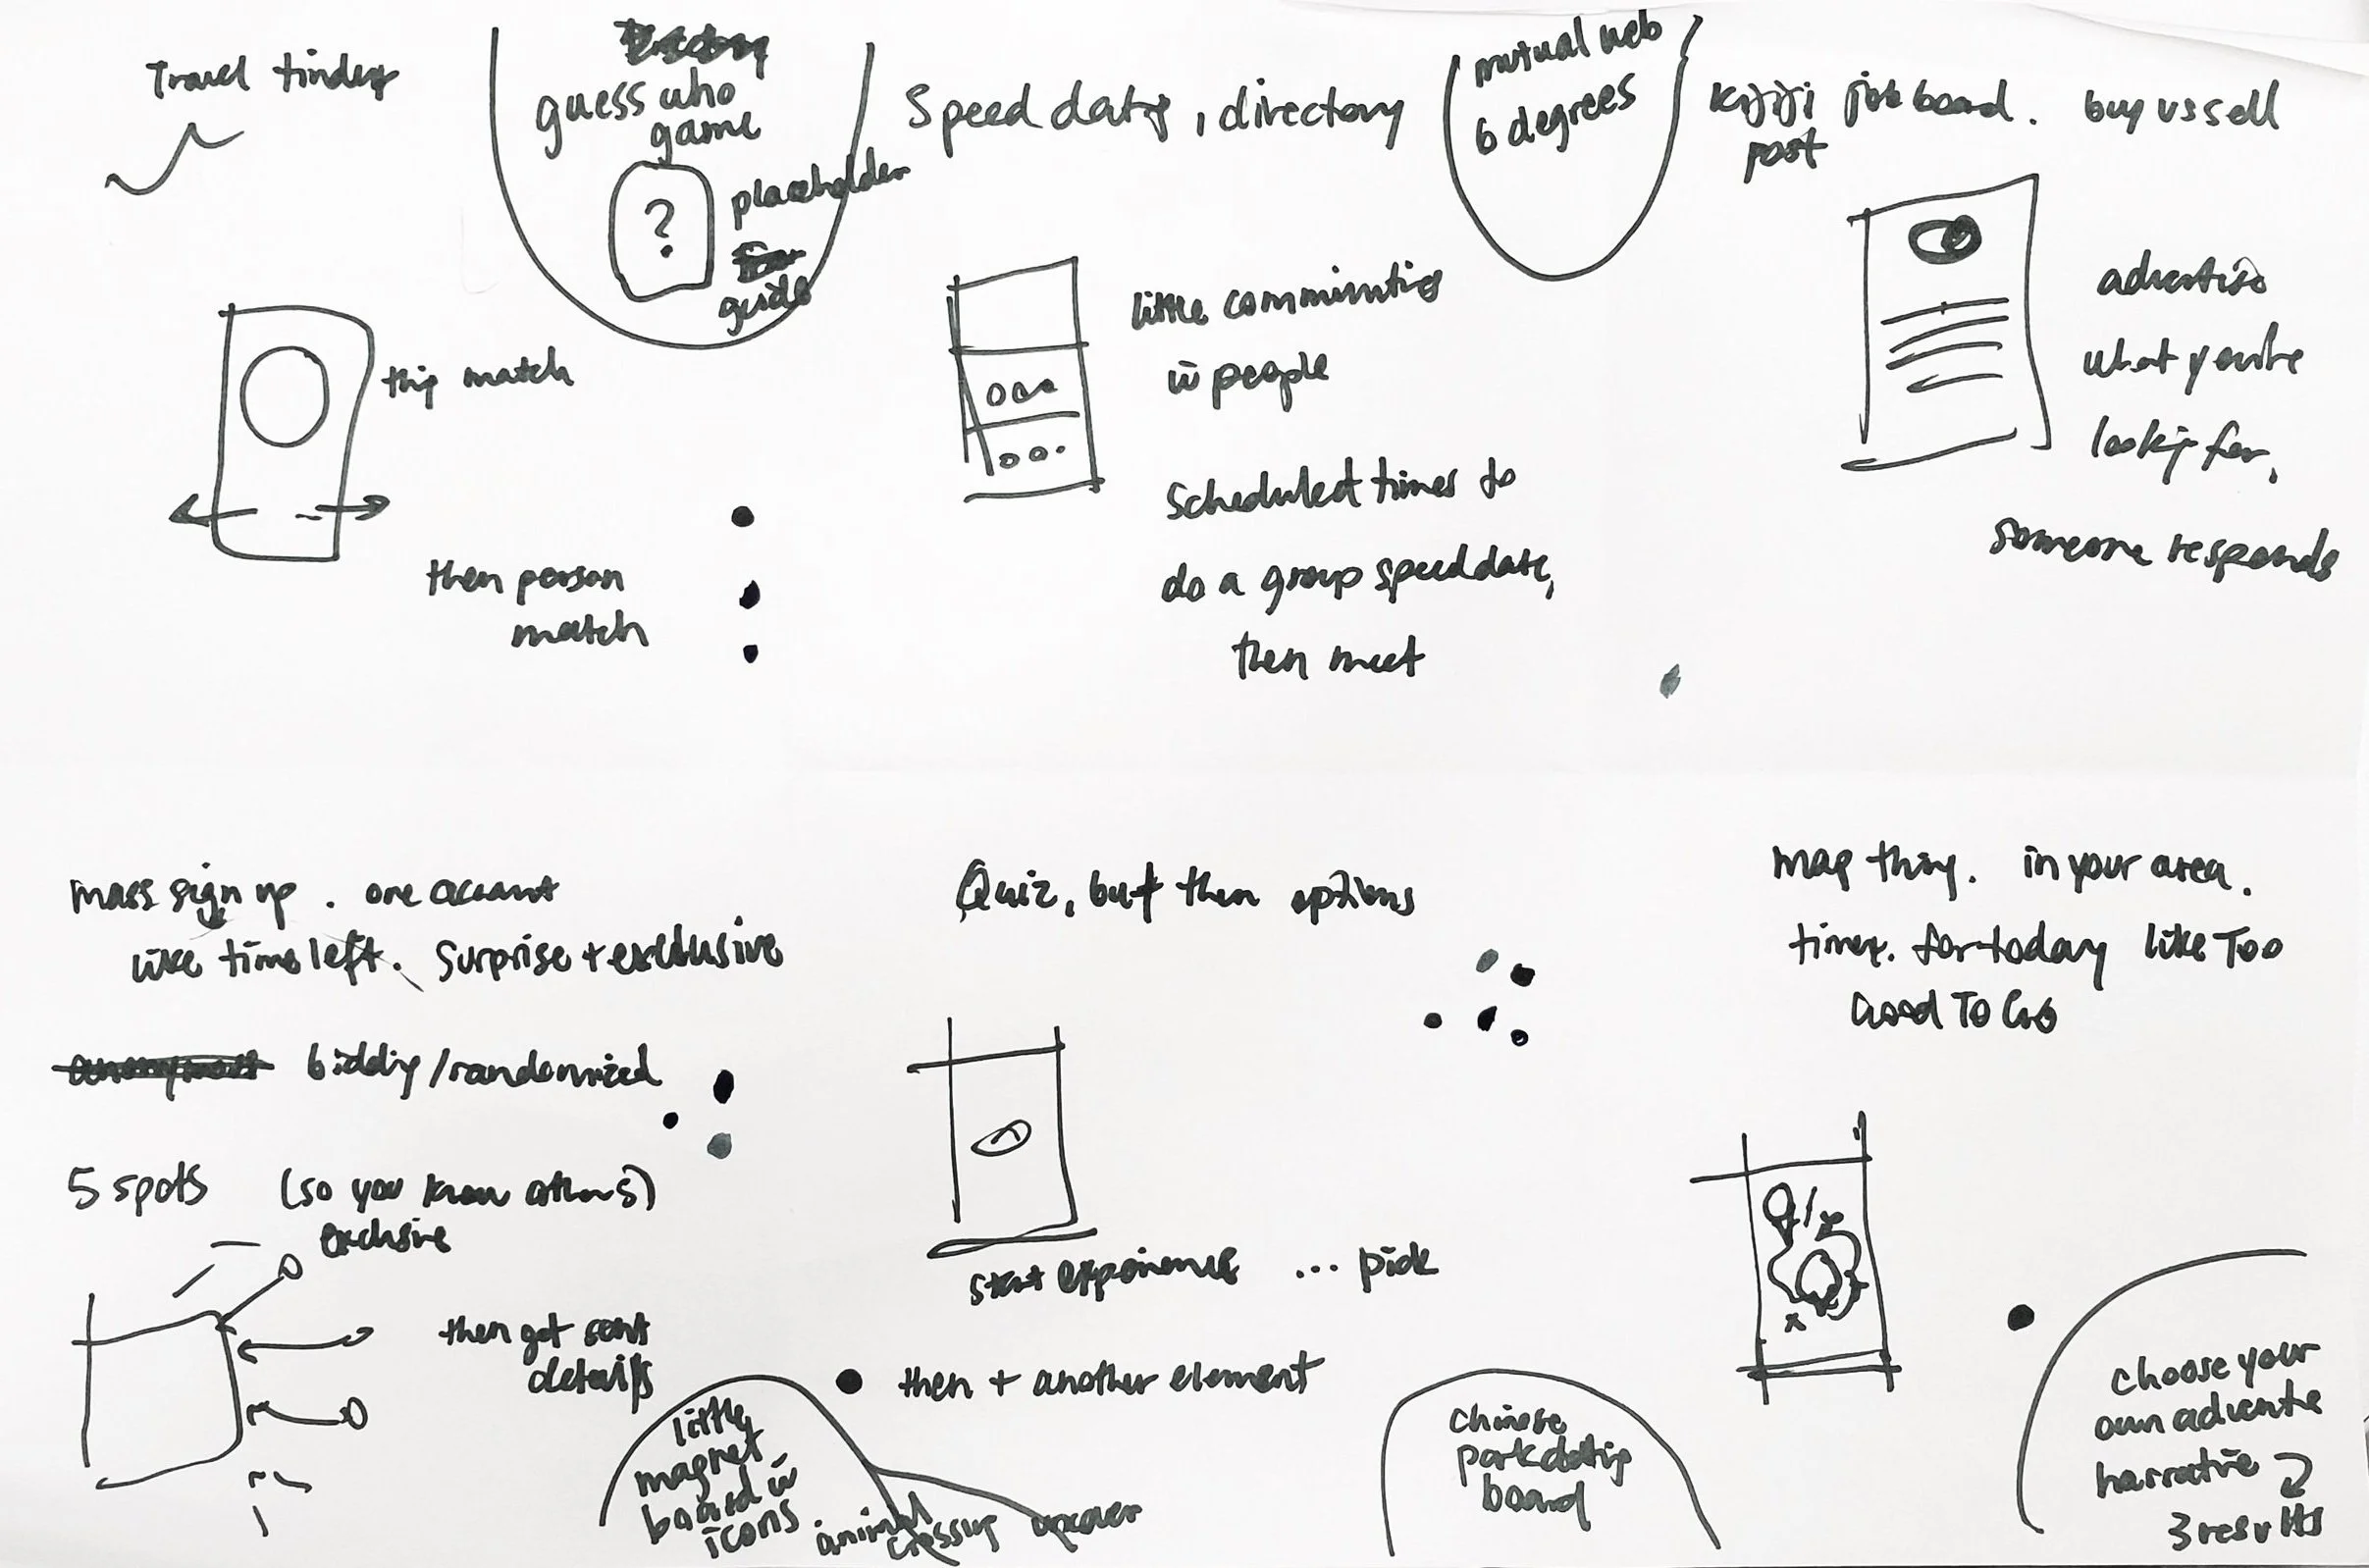 Travel tinder
guess who
game
?
placeholder
guide
trip match
then person
match
Speed date, directory
little communities
w people
Scheduled times to
do a group speed date,
then meet
mutual web
6 degrees
Kijiji job board. buy vs sell
post
advertise
what you're
looking for,
someone responds
mass sign up. one account
like time left. Surprise + exclusive
bidding/randomized
5 spots (so you know others)
exclusive
then get sent
details
little
magnet
board w
icons
animal
crossing
Quiz, but then options
start experience ... pick
then + another element
Chinese
park dating
board
map thing. in your area.
timer. for today like Too
Good To Go
choose your
own adventure
narrative
3 results